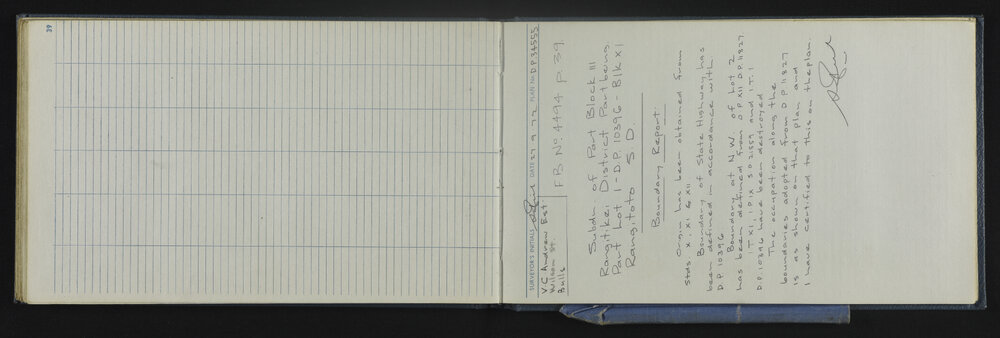 39
SURVEYOR'S INITIALS DATE 27 9 72 PLAN No. D.P. 34555
V.C Andrew Est
Wilson St.
Bulls
F B No: 4494 p 39
Subdn of Part Block III
Rangitikei District Part being
Part Lot 1 - D.P. 10396 - Blk XI
Rangitoto S. D
Boundary Report
Origin has been obtained from
Stds X, XI & XII
Boundary of State Highway has
been defined in accordance with
D.P. 10396
Boundary at N W. of Lot 2
has been defined from O P XII D.P. 11827
I T XI, I P IX S.O. 21559 and I.T. I
D.P. 10396 have been destroyed
The occupation along the
boundaries adopted from D P. 11827
is as shown on that plan and
I have certified to this on the plan.